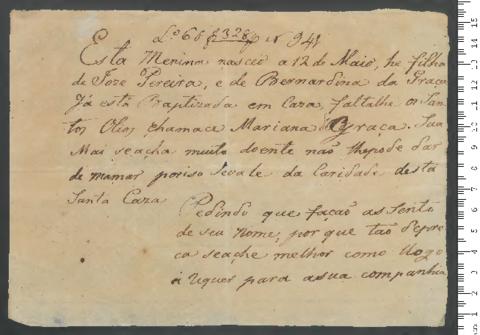 Lº 66 f 328 Nº 941
Esta Menina nasceo a 12 de Maio, he filha
de Joze Pereira, e de Bernardina da Graça
Já está Baptizada em Caza, faltalhe os San
tos Olios chamace Mariana da Graça. Sua
Mai seacha muito doente não thepode dar
de mamar poriso sevale da Caridade desta
Santa Caza
Pedindo que fação as Sento
de seu Nome, por que tão depre
ca seache melhor como llogo
a Uquer para asua companhia